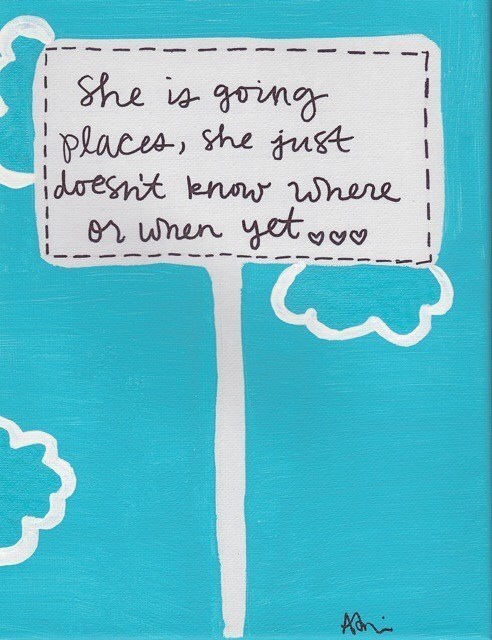 She is going
places, she just
doesn't know where
or when yet♡♡♡